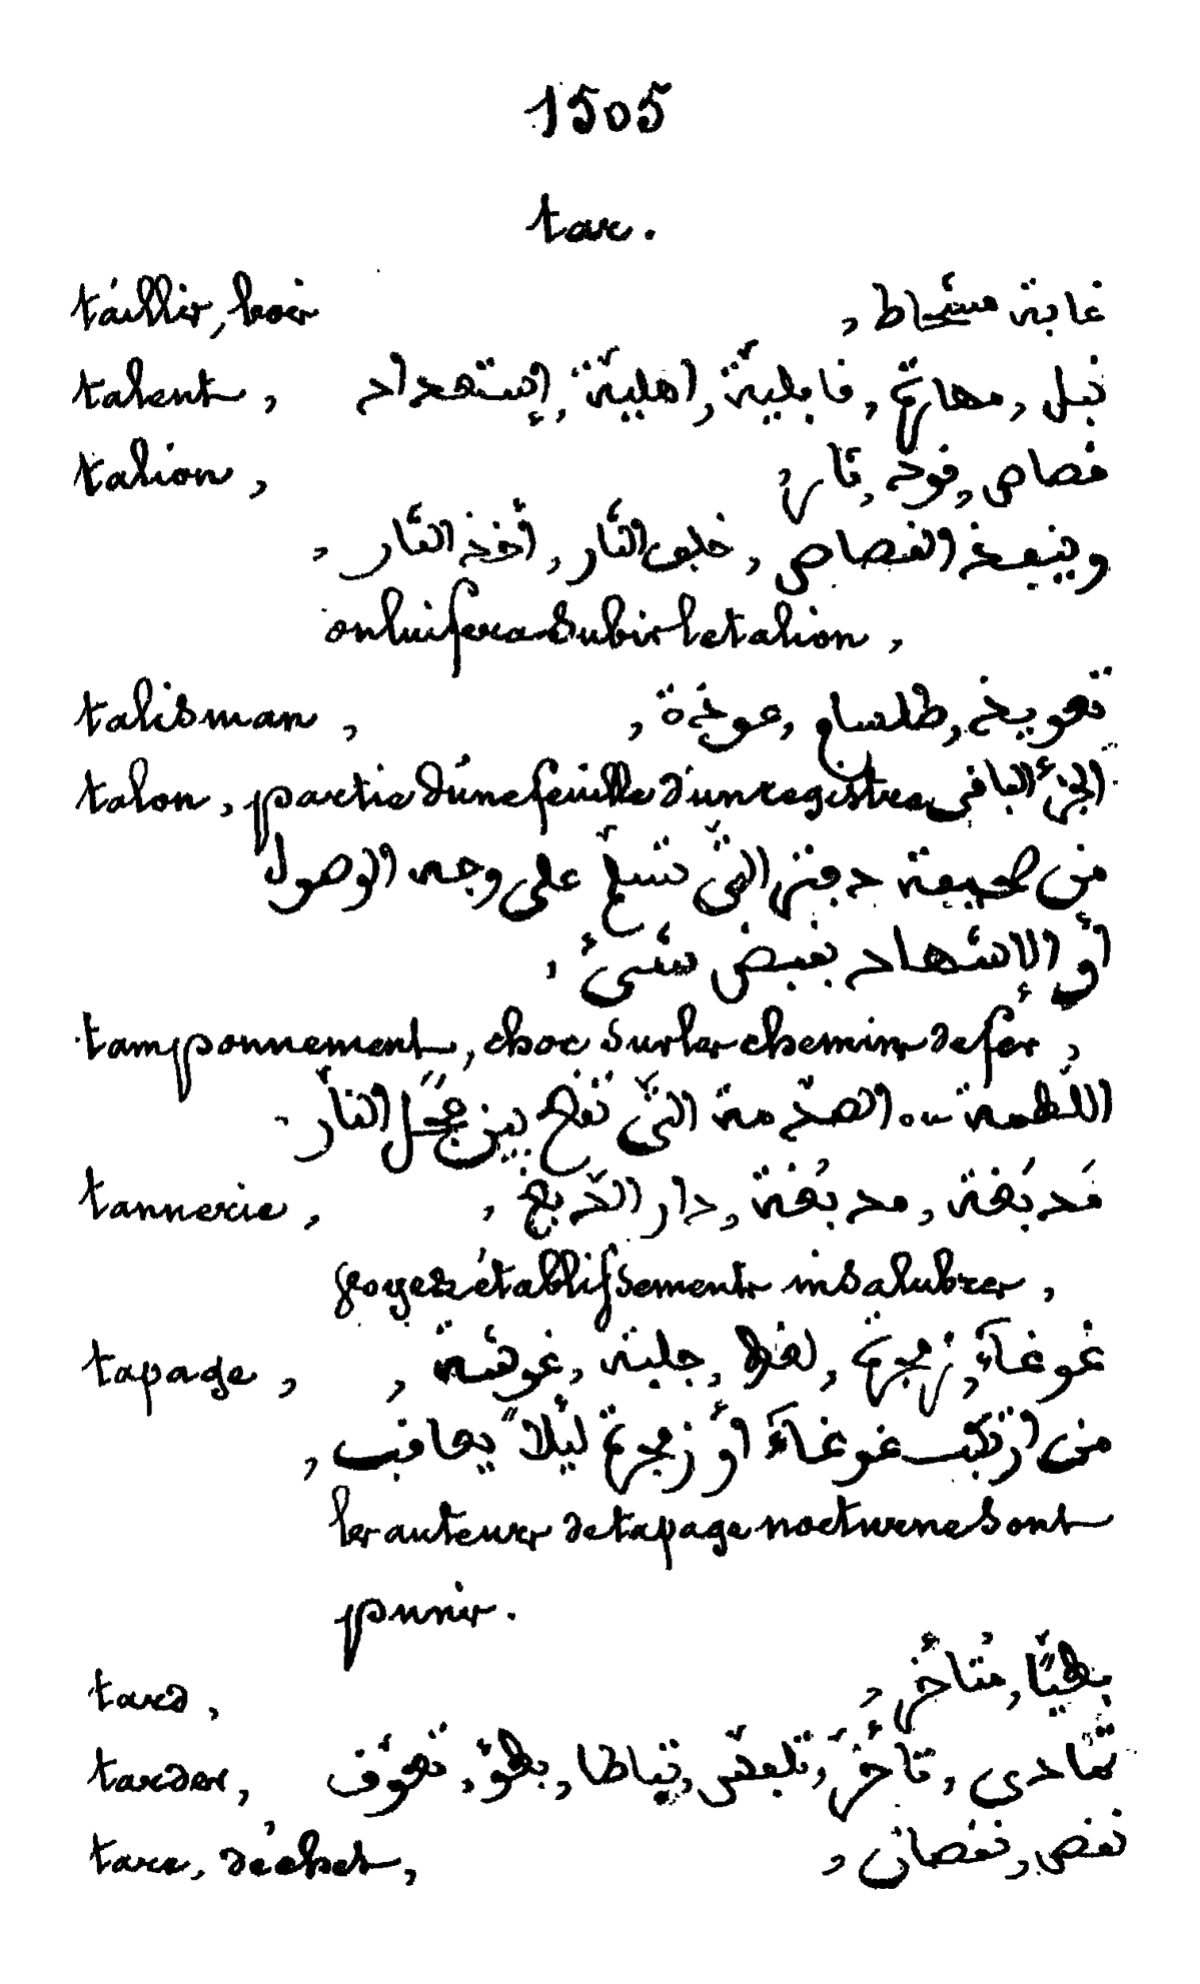 1505
tar.
taillis, bois غابة مشحاط,
talent, نبل, مهارة, قابلية, اهلية, إستعداد
talion, قصاص, قود, ثار,
وينفذ القصاص, خلف الثأر, أخذ الثأر,
on lui fera subir le talion,
talisman, تعويذ, طلسام, عوذة,
talon, partie d'une feuille d'un registre, الجزء الباقي
من صحيفة دفتر التي تسلم على وجه الوصول
أو الإشهاد بقبض شيئ,
tamponnement, choc sur les chemins de fer,
اللطمة الصدمة التي تقع بين عجل النار.
tannerie, مَدبَغة, مدبُغة, دار الدبغ,
voyez établissements insalubres,
tapage, غوغاء, زمجرة, لغط, جلبة, غوشة,
من ارتكب غوغاء أو زمجرة ليلاً يعاقب,
les auteurs de tapage nocturne sont
punis.
tard, بطيًا, مُتأخر,
tarder, تمادى, تأخّر, تباطا, بطؤ, تعوّف
tare, déchet, نقص, نقصان,